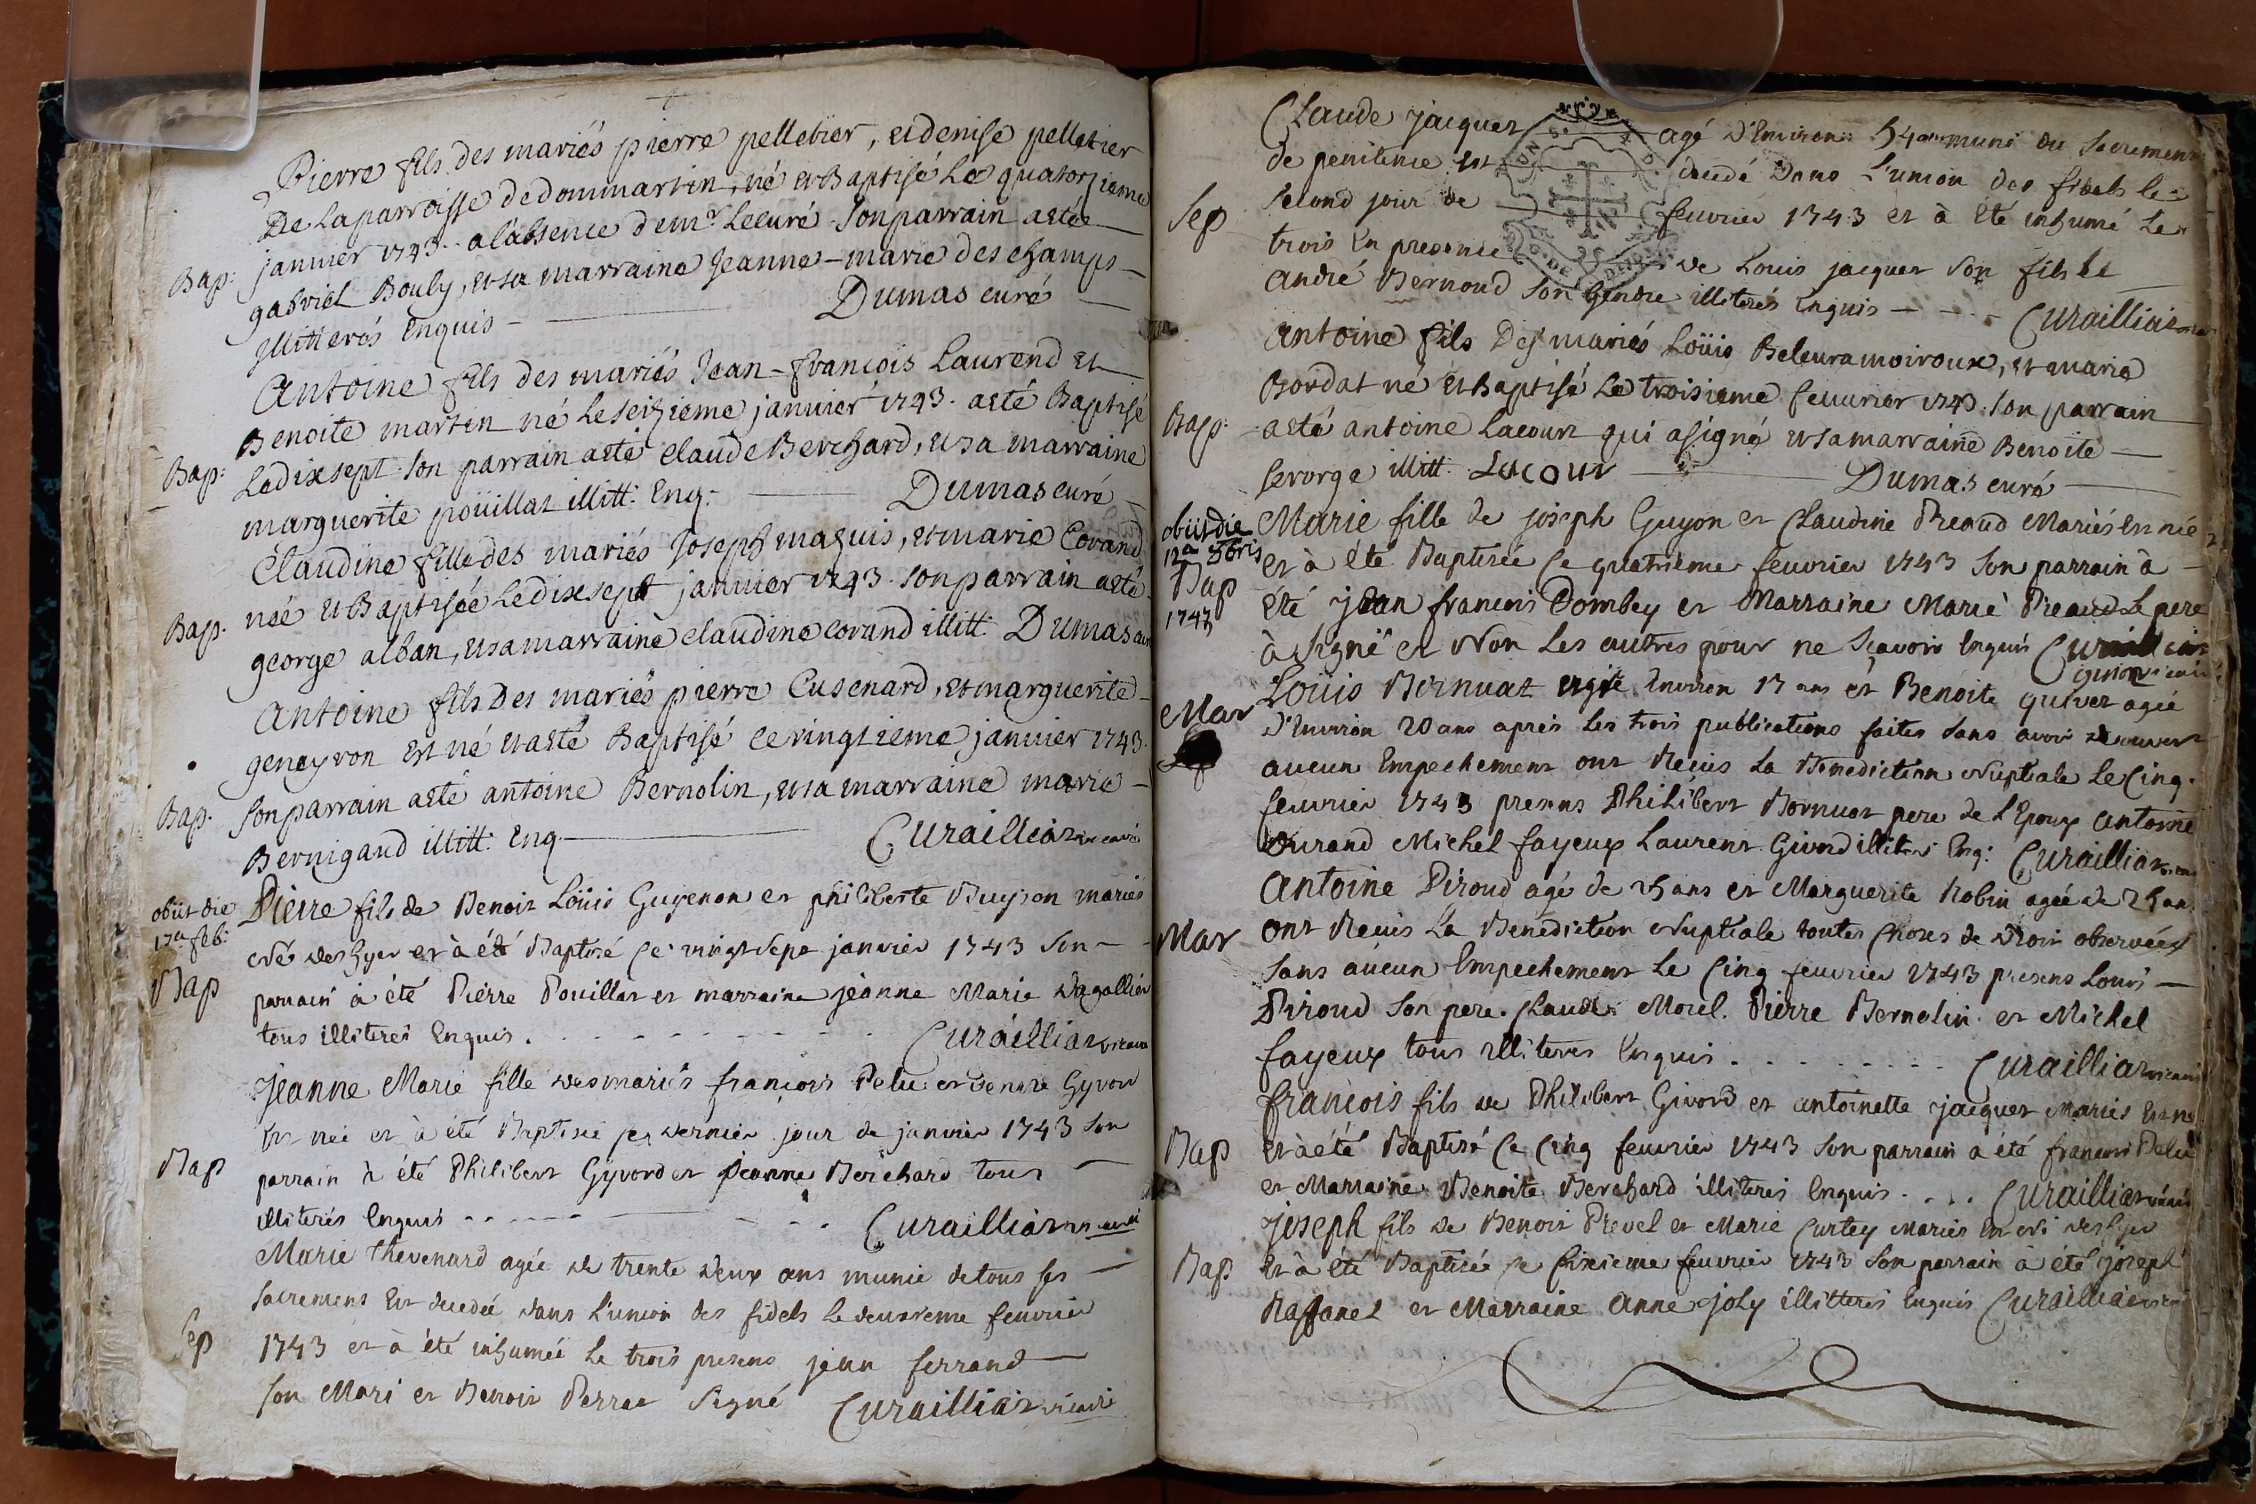 Pierre fils des mariés pierre pelletier, et denise pelletier
De la parroisse de dommartin, né et Baptisé Le quatorzieme
Bap: janvier 1743. a l'absence de mr. Le curé. Son parrain a eté
gabriel Bouly, et sa marraine Jeanne-marie des champs
illitterés Enquis Dumas curé
Antoine fils des mariés Jean-françois Laurend et
Benoite martin né Le seizieme janvier 1743. a eté Baptisé
Bap: Le dix sept. son parrain a eté claude Berchard, et sa marraine
marguerite poüillat illitt: Enq: Dumas curé
Claudine fille des mariés Joseph maguis, et marie Corand
née et Baptisée Le dix sept janvier 1743. son parrain a eté
Bap. george alban, et sa marraine claudine corand illitt: Dumas curé
Antoine fils Des mariés pierre Cusenard, et marguerite
geneyron Est né et a eté Baptisé le vingtieme janvier 1743.
Bap. Son parrain a eté antoine Bernolin, et sa marraine marie
Bernigaud illitt: Enq. Curailliat vicaire
obiit die 17a feb:
Pierre fils de Benoit Loüis Guyenon et philiberte Buyson mariés
né des hyer et à été Baptisé ce vingt sept janvier 1743 son
Bap parrain à été Pierre Pouillat et marraine jeanne Marie Dagallier
tous illiterés Enquis. Curailliat vicaire
Jeanne Marie fille des mariés françois Pelu et Denise Gyvord
Est née et à été Baptisée ce dernier jour de janvier 1743 son
Bap parrain à été Philibert Gyvord et jeanne Berchard tous
illiterés Enquis Curailliat vicaire
Marie Thevenard agée de trente deux ans munie de tous ses
sacremens Est decedée dans l'union des fidels le deuxieme feuvrier
Sep 1743 et à été inhumée le trois presens jean ferrand
son Mari et Benoit Perrat Signé Curailliat vicaire
Claude jacquet agé d'Environ 54 ans muni du Sacrement
de penitence Est decedé Dans L'union des fidels le
Sep second jour de feuvrier 1743 et à été inhumé le
trois En presence de Louis jacquet son fils et
André Bernoud son Gendre illiterés Enquis Curailliat
Antoine fils Des mariés Loüis Beleuramoiroux, et marie
Bordat né et Baptisé Le troisieme feuvrier 1743. son parrain
Bap. a eté antoine Lacour qui a signé et sa marraine Benoite
ferorge illitt. Lacour Dumas curé
obiit die 12a 8bris
Marie fille de joseph Guyon et Claudine Preaud Mariés Est née
et à été Baptisée ce quatrieme feuvrier 1743 son parrain à
Bap 1743
été jean francois Dombey et Marraine Marie Preaud le pere
à signé et Non Les autres pour ne sçavoir Enquis Curailliat vicaire
guion
Loüis Bernuat agé Environ 17 ans et Benoite quivet agée
Mar d'Environ 20 ans aprés les trois publications faites sans avoir decouvert
aucun Empechement ont Reçus La Benediction Nuptiale Le cinq.
feuvrier 1743 presens Philibert Bornuat pere de l'Epoux Antoine
Durand Michel fayeux Laurent Givord illiterés Enq: Curailliat vicaire
Antoine Piroud agé de 25 ans et Marguerite Robin agée de 25 ans
Mar ont Reçus La Benediction Nuptiale toutes choses de droit observées
Sans aucun Empechement Le Cinq feuvrier 1743 presens Louis
Piroud son pere. Claude Morel. Pierre Bernolin et Michel
fayeux tous illiteres Enquis. Curailliat vicaire
françois fils de Philibert Givord et antoinette jacquet Mariés Est né
Bap Et à été Baptisé ce Cinq feuvrier 1743 son parrain à été francois Pelu
et Marraine Benoite Berchard illiterés Enquis. Curailliat vicaire
Joseph fils de Benoit Prevel et Marie Curtey Mariés Est né des hyer
Bap Et à été Baptisée ce sixieme feuvrier 1743 son parrain à été joseph
Raffanel et Marraine Anne joly illitterés Enquis Curailliat vicaire